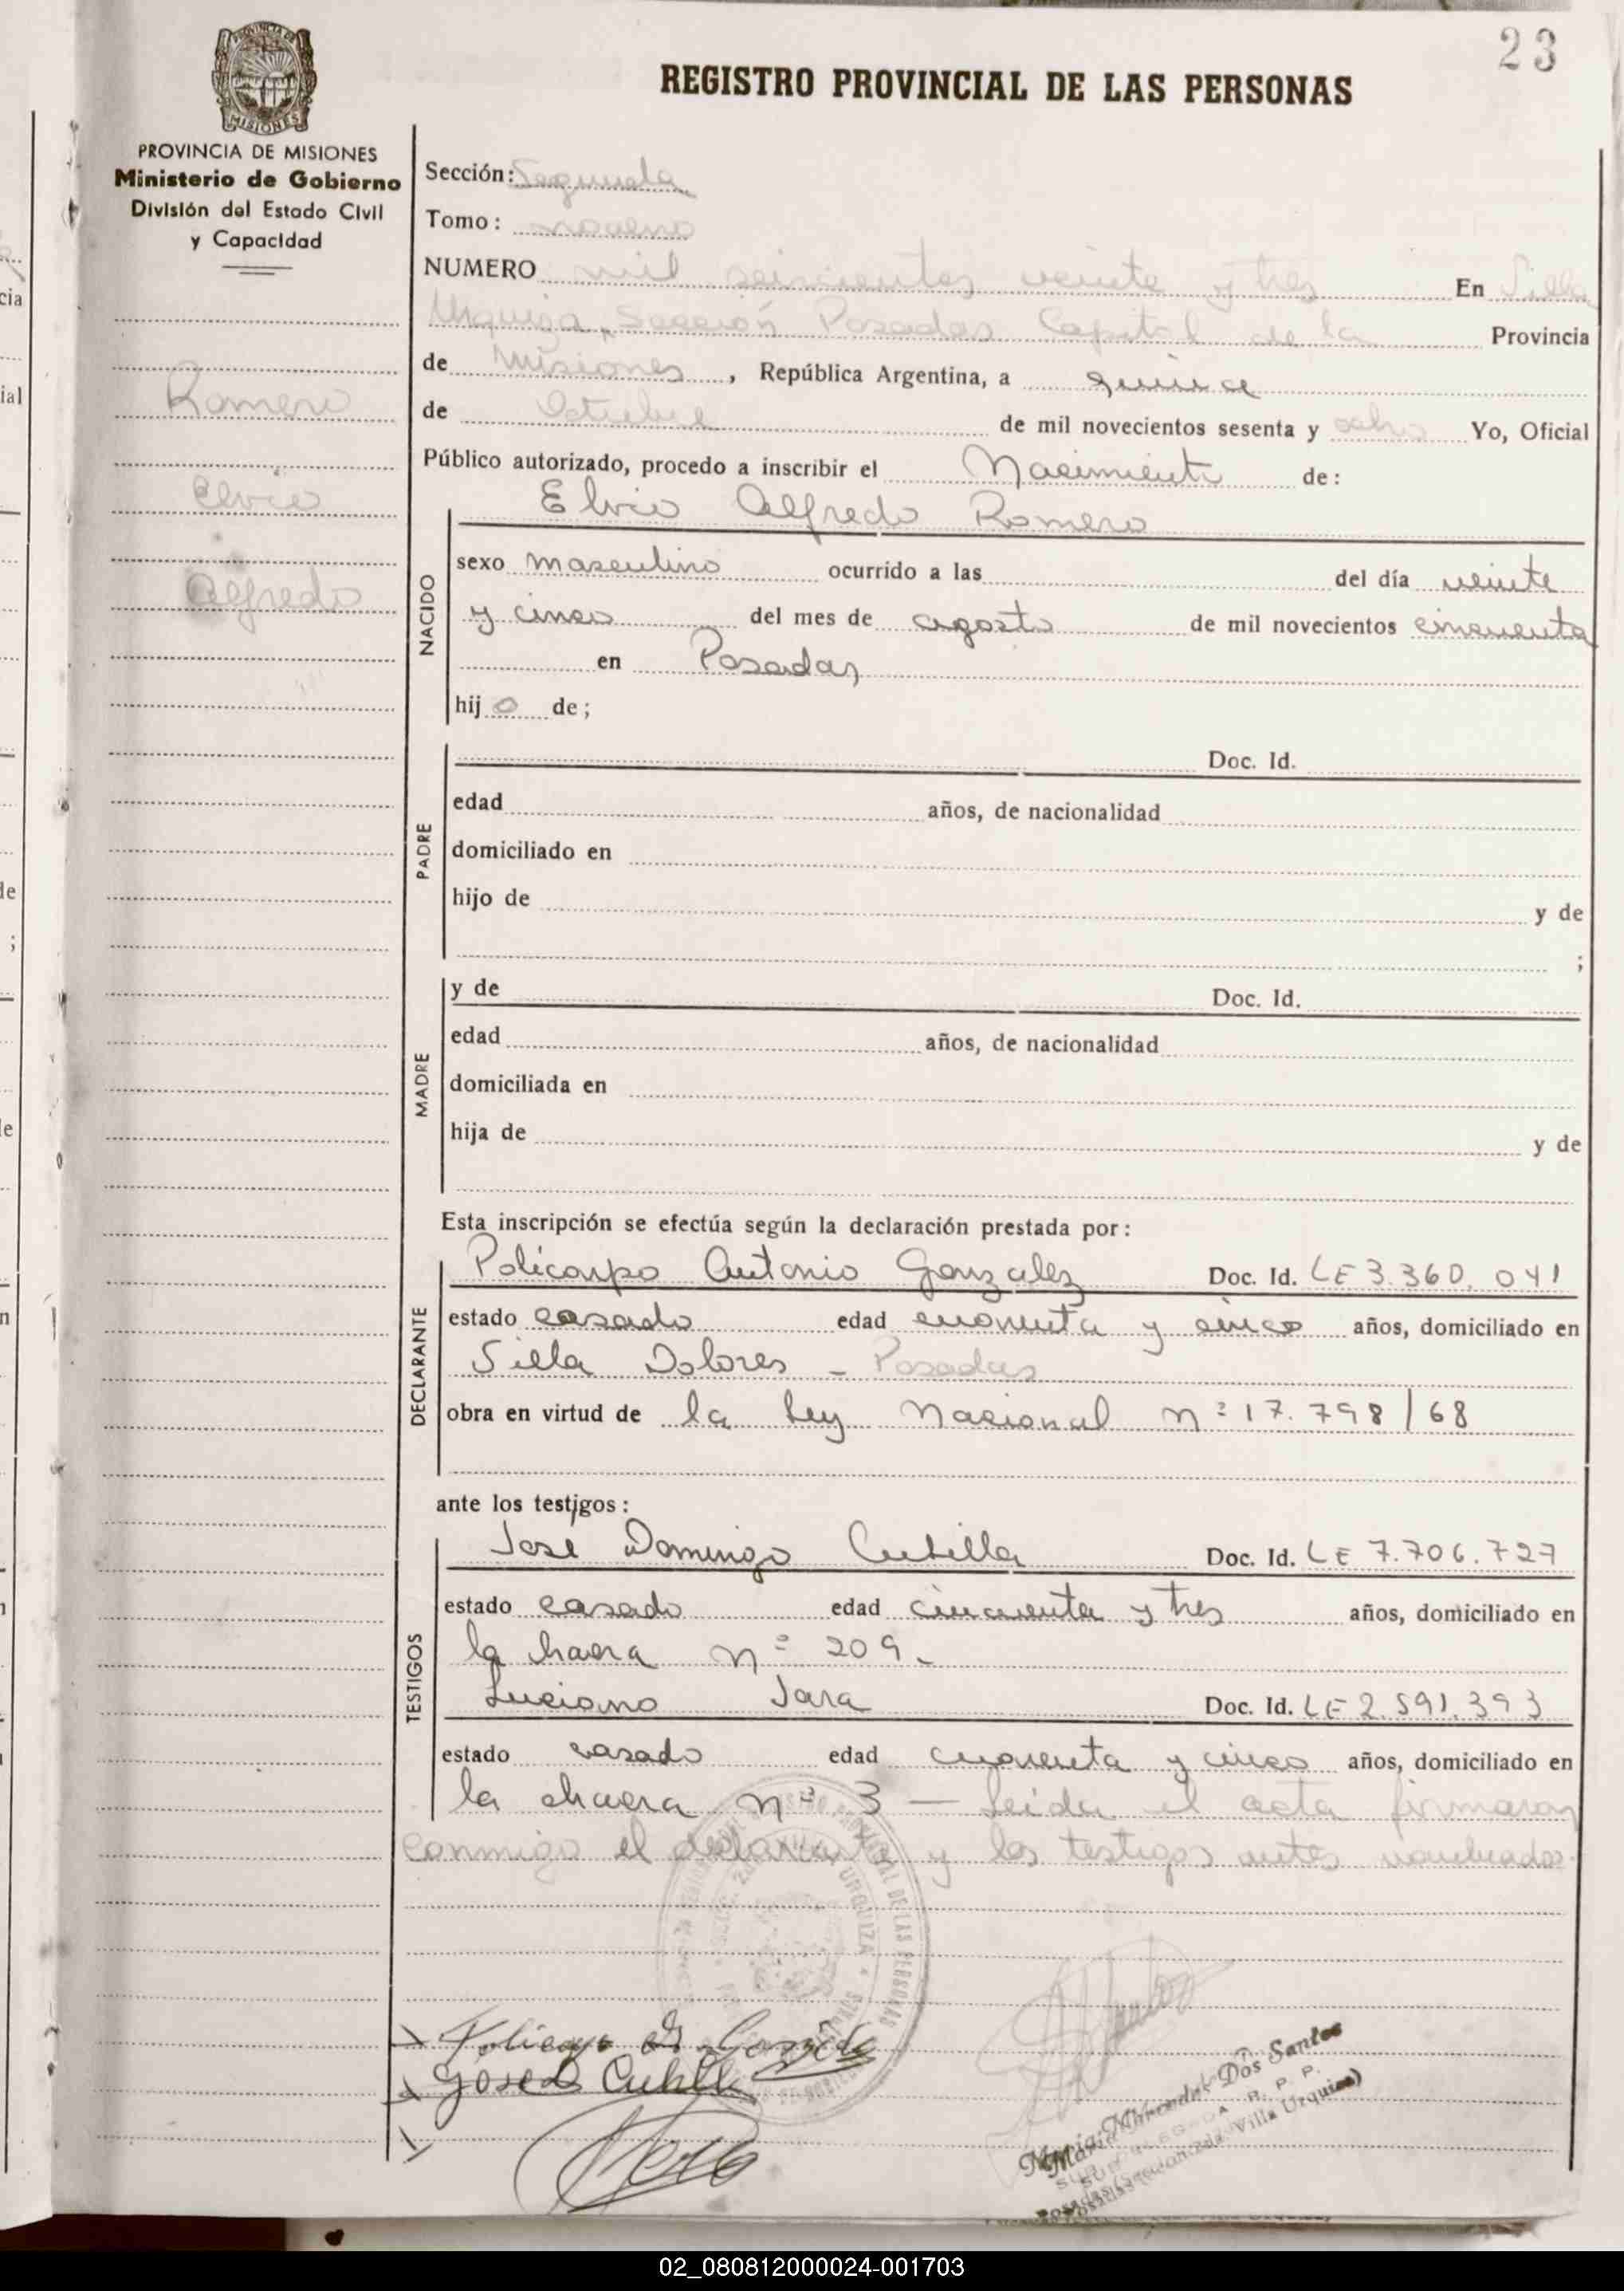 23
REGISTRO PROVINCIAL DE LAS PERSONAS
PROVINCIA DE MISIONES
Ministerio de Gobierno
División del Estado Civil
y Capacidad
Romero
Elvio
Alfredo
Sección: Segunda
Tomo: noveno
NUMERO mil seiscientos veinte y tres En Villa
Urquiza, Sección Posadas Capital de la Provincia
de Misiones, República Argentina, a quince
de Octubre de mil novecientos sesenta y ocho Yo, Oficial
Público autorizado, procedo a inscribir el Nacimiento de:
Elvio Alfredo Romero
NACIDO
sexo masculino ocurrido a las del día veinte
y cinco del mes de agosto de mil novecientos cincuenta
en Posadas
hijo de;
PADRE
Doc. Id.
edad años, de nacionalidad
domiciliado en
hijo de y de
;
MADRE
y de Doc. Id.
edad años, de nacionalidad
domiciliada en
hija de y de
Esta inscripción se efectúa según la declaración prestada por:
DECLARANTE
Policarpo Antonio Gonzalez Doc. Id. LE 3.360.041
estado casado edad cuarenta y cinco años, domiciliado en
Villa Dolores - Posadas
obra en virtud de la Ley Nacional nº 17.798/68
ante los testigos:
TESTIGOS
José Domingo Cubilla Doc. Id. LE 7.706.727
estado casado edad cincuenta y tres años, domiciliado en
la hacra nº 209.
Luciano Jara Doc. Id. LE 2.591.393
estado casado edad cuarenta y cinco años, domiciliado en
la chacra nº 3 — Leida el acta firmaron
conmigo el declarante y los testigos antes nombrados.
PROVINCIAL DE LAS PERSONAS
URQUIZA
Policarpo A. Gonzalez
José D. Cubilla
Maria Mercedes Dos Santos
SUB DELEGADA R. P. P.
Posadas (Villa Urquiza)
02_080812000024-001703